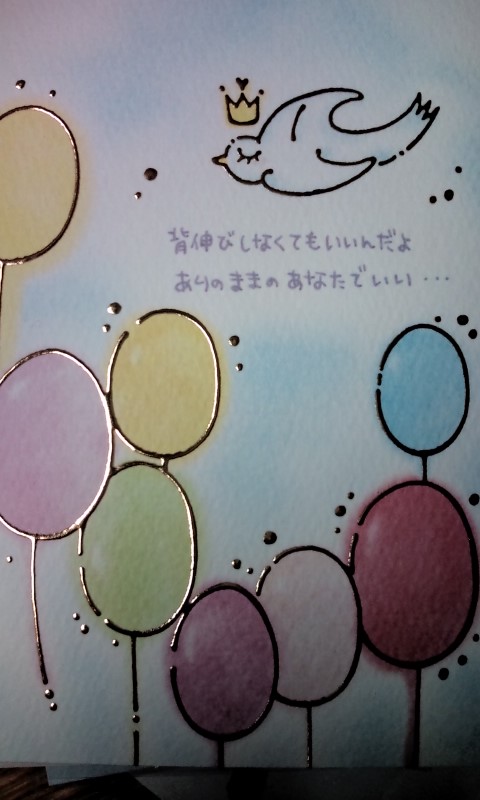 背伸びしなくてもいいんだよ
ありのままのあなたでいい…